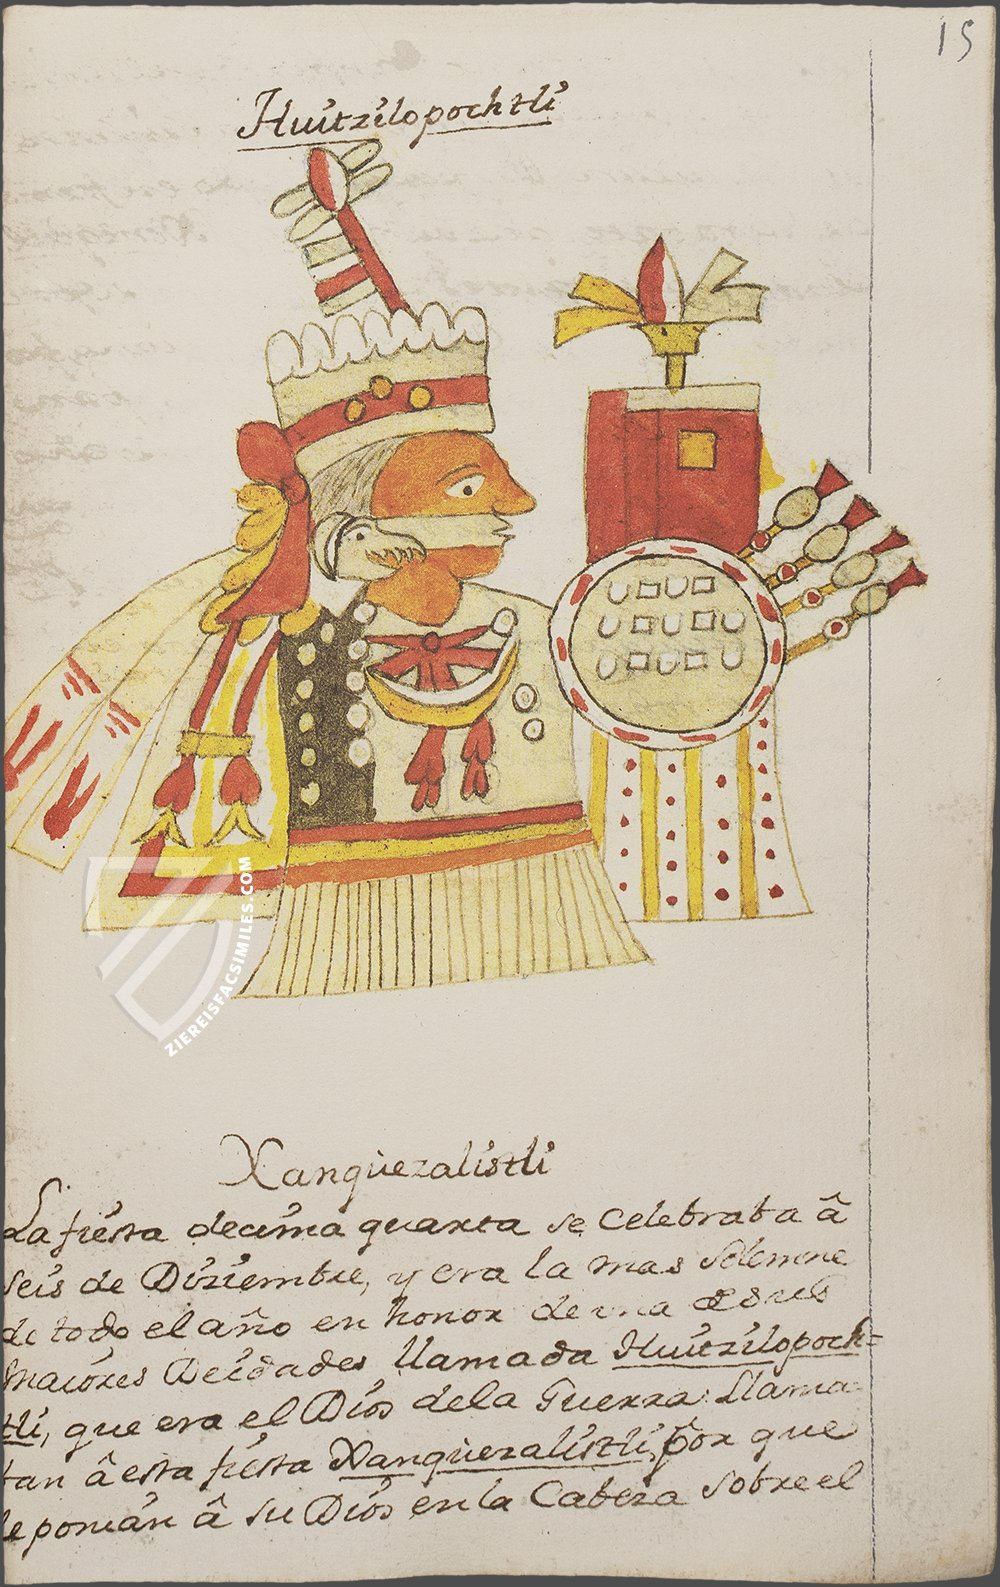 15
Huitzilopochtli
ZIEREISFACSIMILES.COM
Xanquezalistli
La fiesta decima quarta se Celebraba â
seis de Diziembre, y era la mas solemne
de todo el año en honor de una de sus
maiores Deidades llamada Huitzilopoch=
tli, que era el Dios de la Guerra: Llama
ban â esta fiesta Xanquezalistli, por que
le ponian â su Dios en la Cabeza sobre el